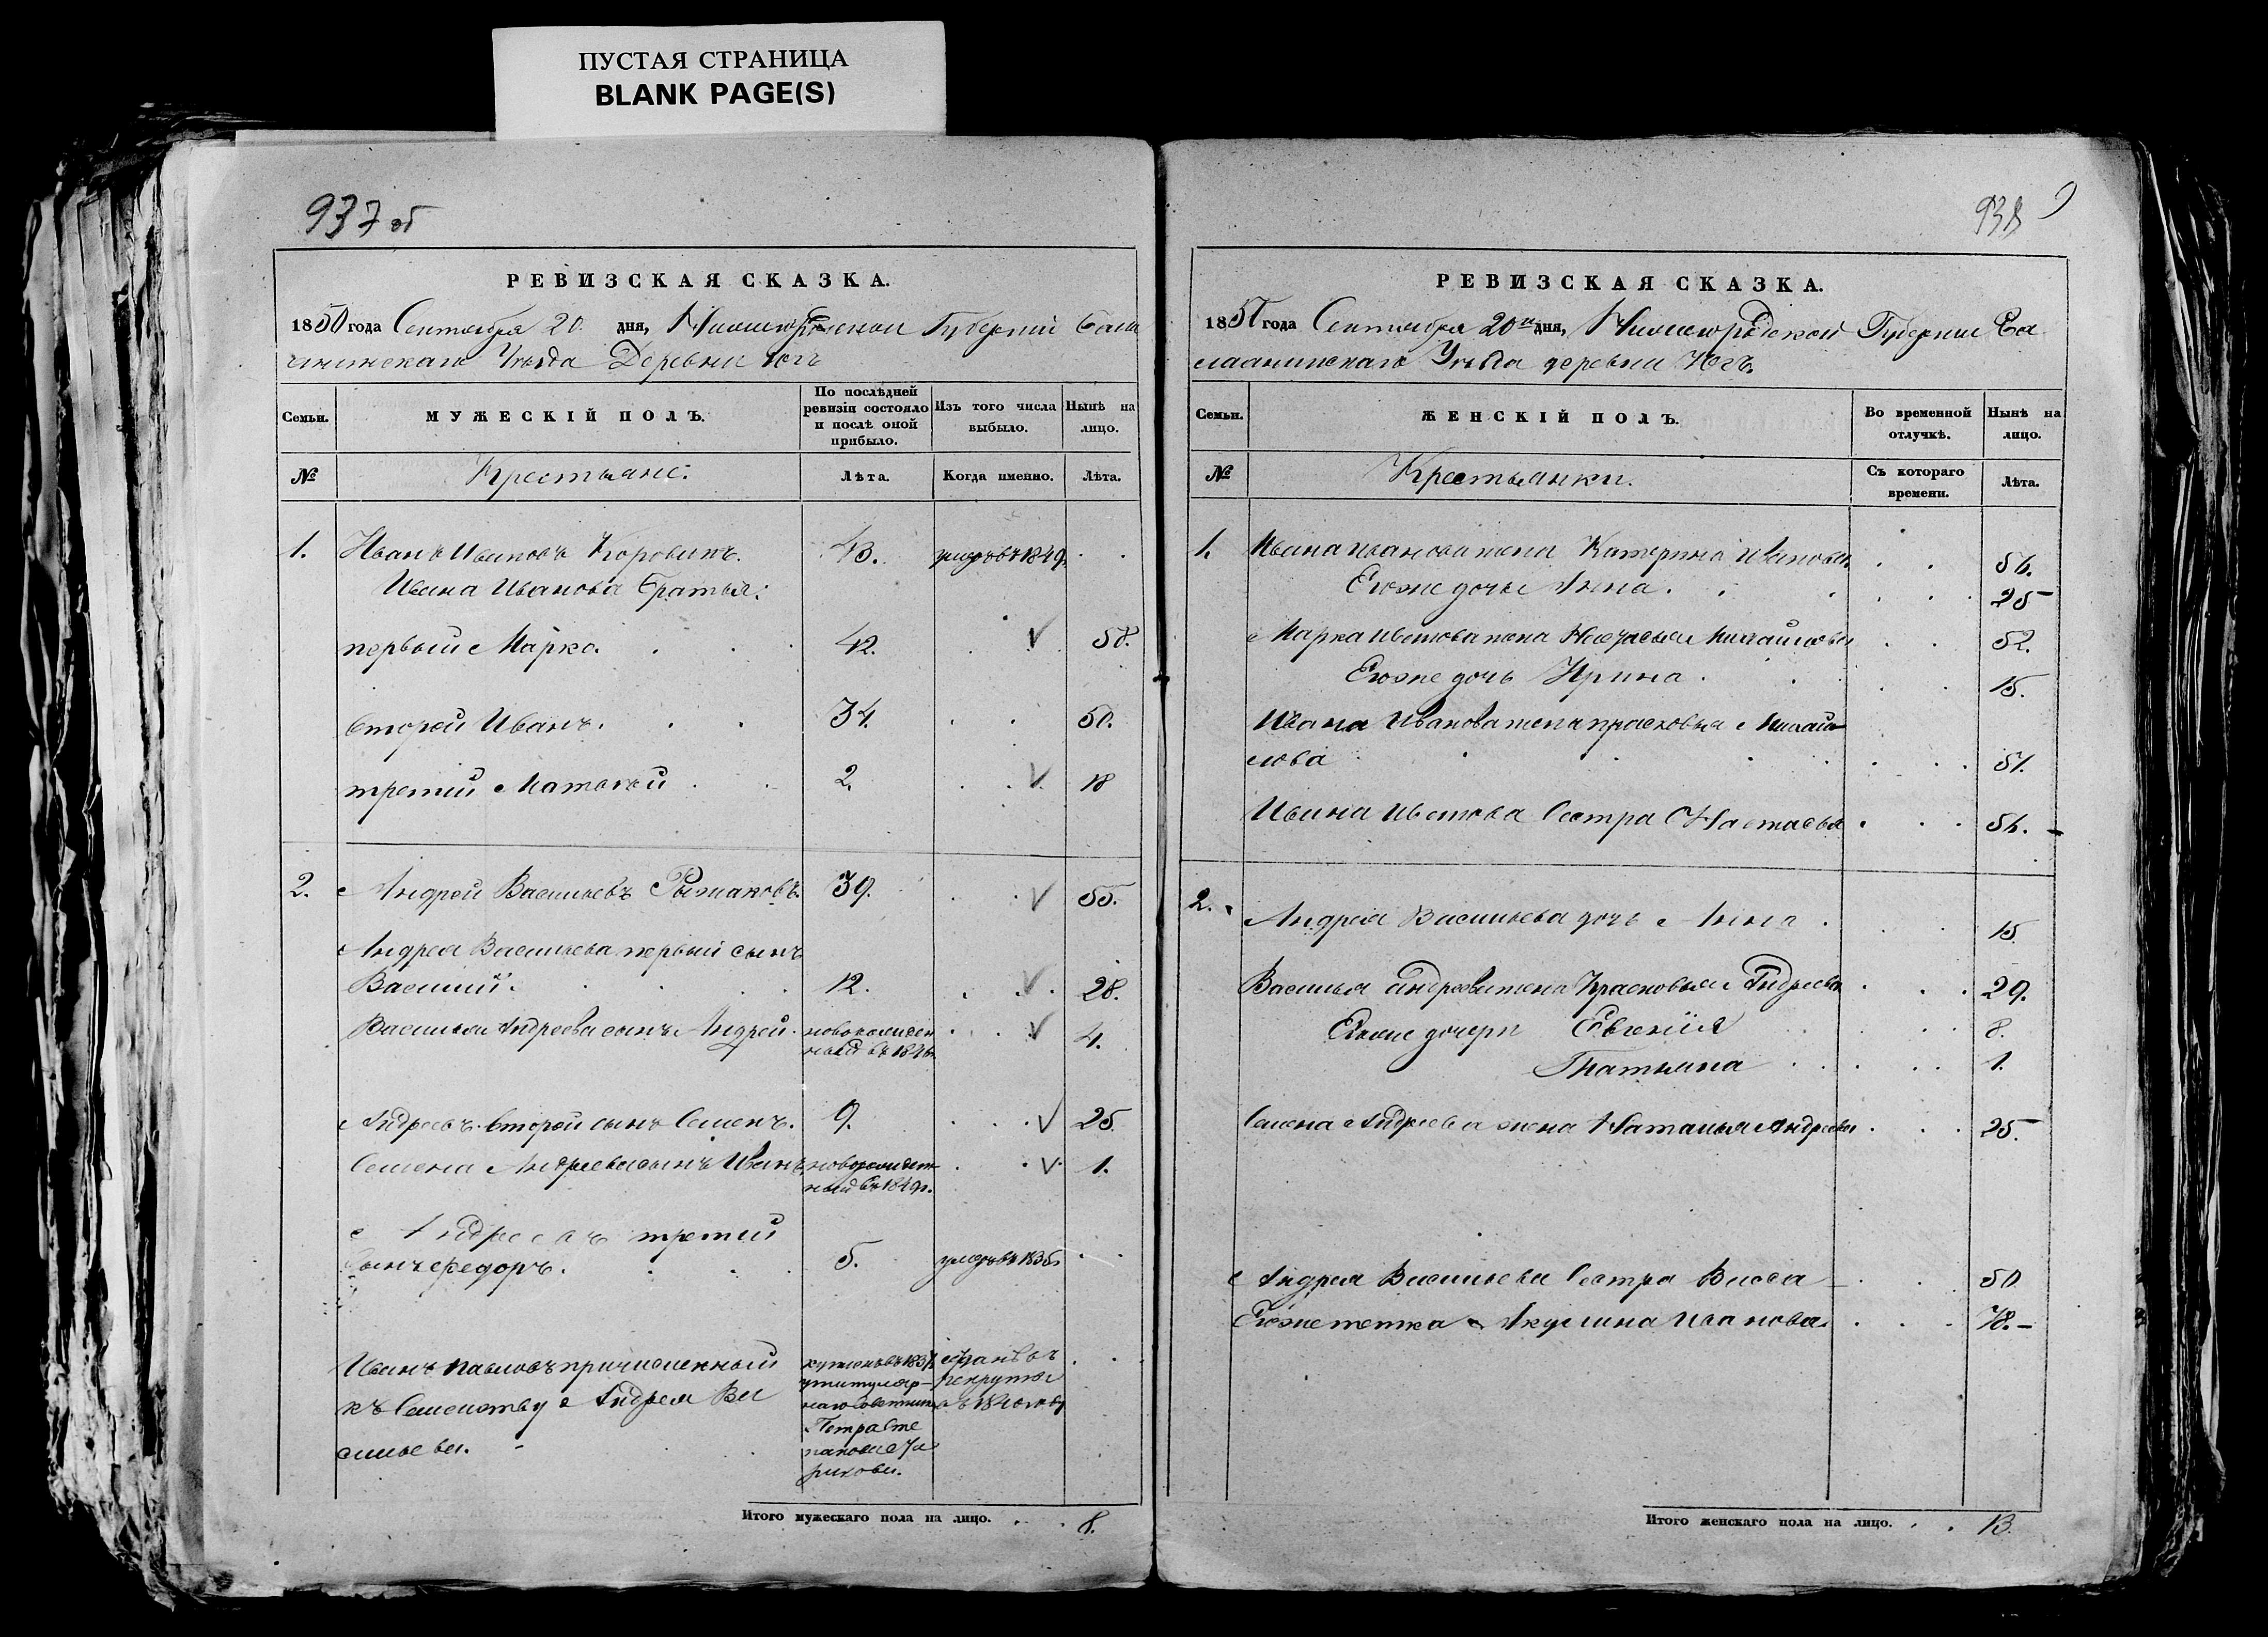 ПУСТАЯ СТРАНИЦА
BLANK PAGE(S)
937 об
РЕВИЗСКАЯ СКАЗКА.
1850 года Сентября 20. дня, Нижегородской Губернии Бала
хнинскаго Уезда Деревни Югъ
Семьи. МУЖЕСКІЙ ПОЛЪ. По послѣдней ревизіи состояло и послѣ оной прибыло. Изъ того числа выбыло. Нынѣ на лицо.
№ Крестьяне: Лѣта. Когда именно. Лѣта.
1. Иванъ Ивановъ Коровинъ. 43. умеръ въ 1849. . .
Ивана Иванова братья:
первый Марко. . . . 42. . V . 58.
второй Иванъ. . . 34. . . 50.
третий Матвей . . 2. . . V. 18
2. Андрей Васильевъ 39. . . V 55.
Андрея Васильева первый сынъ
Василий. . . . 12. . . V . 28.
Василья Андреева сынъ Андрей. новорожден . . . V 4.
ный въ 1846
Андреевъ второй сынъ Семенъ. 9. . . . V 25.
Семена Андреева сынъ Иванъ новорожден . . V. 1.
ный въ 1849г.
Андреевъ третий
сынъ Федоръ. . . . 5. умеръ въ 1835 . .
Иванъ Павловъ причисленный купленъ въ 1837 отданъ въ . .
къ Семейству Андрея Ва у титуляр- рекруты
сильева. наго советника въ 1840 году
Петра Сте
панова
Итого мужескаго пола на лицо. . . . 8.
938 9
РЕВИЗСКАЯ СКАЗКА.
1850 года Сентября 20го дня, Нижегородской Губернии Ба
лахнинскаго Уезда деревни Югъ.
Семьи. ЖЕНСКІЙ ПОЛЪ. Во временной отлучкѣ. Нынѣ на лицо.
№ Крестьянки. Съ котораго времени. Лѣта.
1. Ивана Иванова жена Катерина Иванова . . 56.
Ево же дочь Анна. . . . . . 25
Марка Иванова жена Настасья Михайлова . . 52.
Ево же дочь Ирина . . . . 15.
Ивана Иванова жена Прасковья Михай-
лова . . . . . . . . 51.
Ивана Иванова Сестра Настасья . . . 54. -
2. Андрея Васильева дочь Анна . . . 15.
Василья Андреева жена Прасковья Андреева . . . 29.
Ево же дочери Евгения . . . . 8.
Татьяна . . . . . 1.
Семена Андреева жена Наталья Андреева . . . 25.
Андрея Васильева Сестра Васса . . 50
Ево же тетка Акулина Иванова . . . 78. -
Итого женскаго пола на лицо. . . 13.